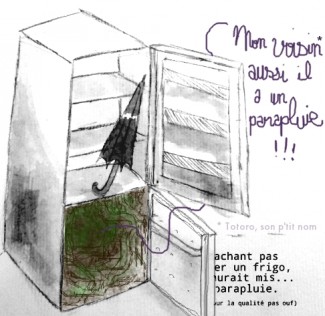 Mon voisin*
aussi il
a un
parapluie
!!!
* Totoro, son p'tit nom
achant pas
er un frigo,
urait mis...
parapluie.
ur la qualité pas ouf)